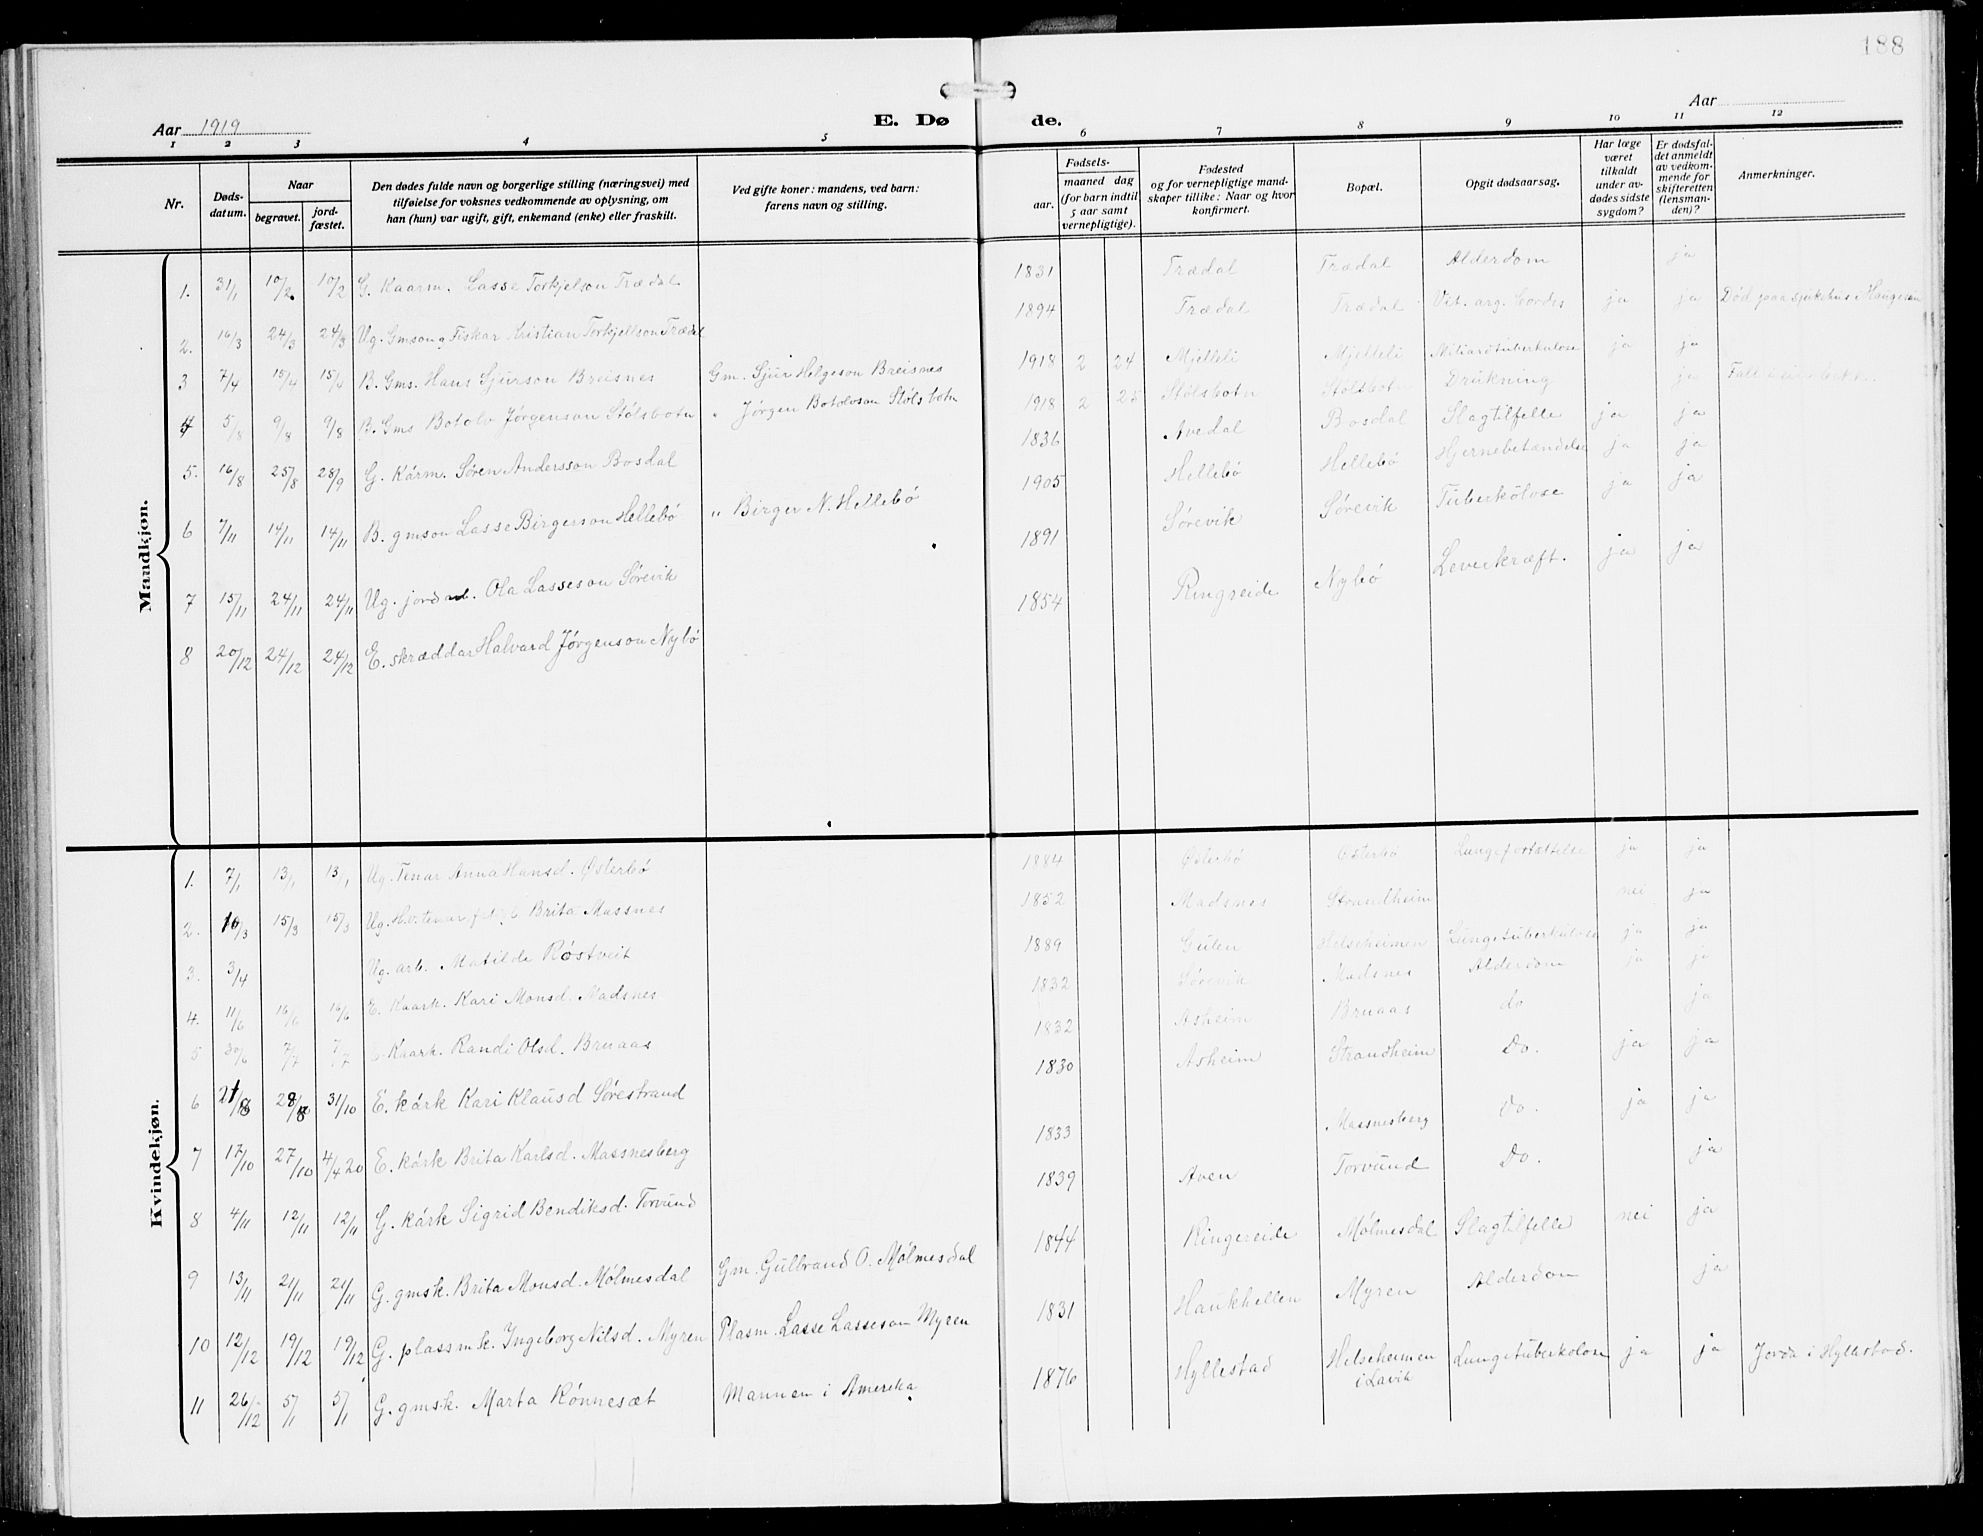 188
Aar 1919
E. Dø de.
Aar
1 2 3 4 5 6 7 8 9 10 11 12
Nr.
Døds-
datum.
Naar
begravet.
jord-
fæstet.
Den dødes fulde navn og borgerlige stilling (næringsvei) med
tilføielse for voksnes vedkommende av oplysning, om
han (hun) var ugift, gift, enkemand (enke) eller fraskilt.
Ved gifte koner: mandens, ved barn:
farens navn og stilling.
Fødsels-
aar.
maaned dag
(for barn indtil
5 aar samt
vernepligtige).
Fødested
og for vernepligtige mand-
skaper tillike: Naar og hvor
konfirmert.
Bopæl.
Opgit dødsaarsag.
Har læge
været
tilkaldt
under av-
dødes sidste
sygdom?
Er dødsfal-
det anmeldt
av vedkom-
mende for
skifteretten
(lensman-
den)?
Anmerkninger.
Mandkjøn.
1. 31/1 10/2 10/2 G. Kaarm. Lasse Torkjelson Trædal 1831 Trædal Trædal Alderdom ja
2. 16/3 24/3 24/3 Ug. Gmson og Fiskar Kristian Torkjellson Trædal 1894 Trædal Trædal Vit. org. cordis ja ja Død paa sjukehus Haugesun
3 7/4 15/4 15/4 B. Gms. Hans Sjurson Breisnes Gm. Sjur Helgeson Breisnes 1918 2 24 Mjelleli Mjelleli Miliærtuberkulose ja ja
4 5/8 9/8 9/8 B. Gms Botolv Jørgenson Stølsbotn " Jørgen Botolvson Stølsbotn 1918 2 25 Stølsbotn Stølsbotn Drukning ja Falt i
5. 16/8 25/8 28/9 G. Kårm. Søren Andersson Bosdal 1836 Avedal Bosdal Slagtilfelle ja ja
6 7/11 14/11 14/11 B. gmson Lasse Birgerson Hellebø " Birger N. Hellebø 1905 Hellebø Hellebø Hjernebetændelse ja ja
7 15/11 24/11 24/11 Ug. jordarb. Ola Lasseson Sørevik 1891 Sørevik Sørevik Tuberkulose ja ja
8 20/12 24/12 24/12 E. skræddar Halvard Jørgenson Nybø 1854 Ringreide Nybø Leverkræft. ja ja
Kvindekjøn.
1. 7/1 13/1 13/1 Ug. Tenar Anna Hansd. Østerbø 1884 Østerbø Østerbø Lungefortættelse ja ja
2. 10/3 15/3 15/3 Ug. Brita Massnes 1852 Madsnes Strandheim nei ja
3. 3/4 Ug. arb. Matilde Røstveit 1889 Gulen Helseheimen Lungetuberkulose ja ja
4. 11/6 16/6 16/6 E. Kaark. Kari Monsd. Madsnes 1832 Sørevik Madsnes Alderdom ja ja
5 30/6 7/7 7/7 E. Kaark. Randi Olsd. Bruaas 1832 Asheim Bruaas do ja
6 21/8 28/8 31/10 E. kårk Kari Klausd Sørestrand 1830 Asheim Strandheim Do. ja ja
7 17/10 27/10 4/4 20 E. kårk Brita Karlsd. Massnesberg 1833 Massnesberg Do. ja ja
8 4/11 12/11 12/11 G. kårk Sigrid Bendiksd. Torvund 1839 Aven Torvund Do. ja
9 13/11 21/11 21/11 G. gmsk. Brita Monsd. Mølmesdal Gm. Gulbrand O. Mølmesdal 1844 Ringereide Mølmesdal Slagtilfelle nei ja
10 12/12 19/12 19/12 G. plassmk. Ingeborg Nilsd. Myren Plasm. Lasse Lasseson Myren 1831 Haukhellen Myren Alderdom ja
11 26/12 5/1 5/1 G. gmsk. Marta Rønnesæt Mannen i Amerika 1876 Hyllestad Helseheimen i Lavik Lungetuberkolose ja ja Jorda i Hyllestad.